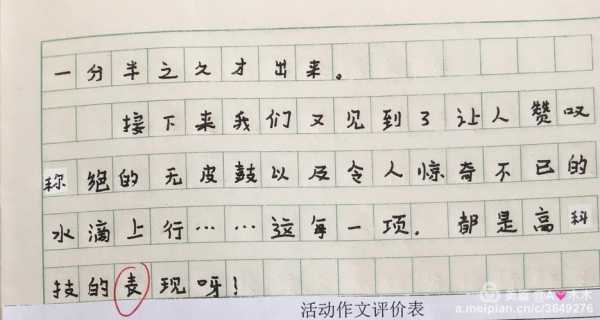 一分半之久才出来。
接下来我们又见到了让人赞叹
称绝的无皮鼓以及令人惊奇不已的
水滴上行……这每一项．都是高科
技的表现呀！
活动作文评价表
美篇 @A♥木木
a.meipian.cn/c/3649276